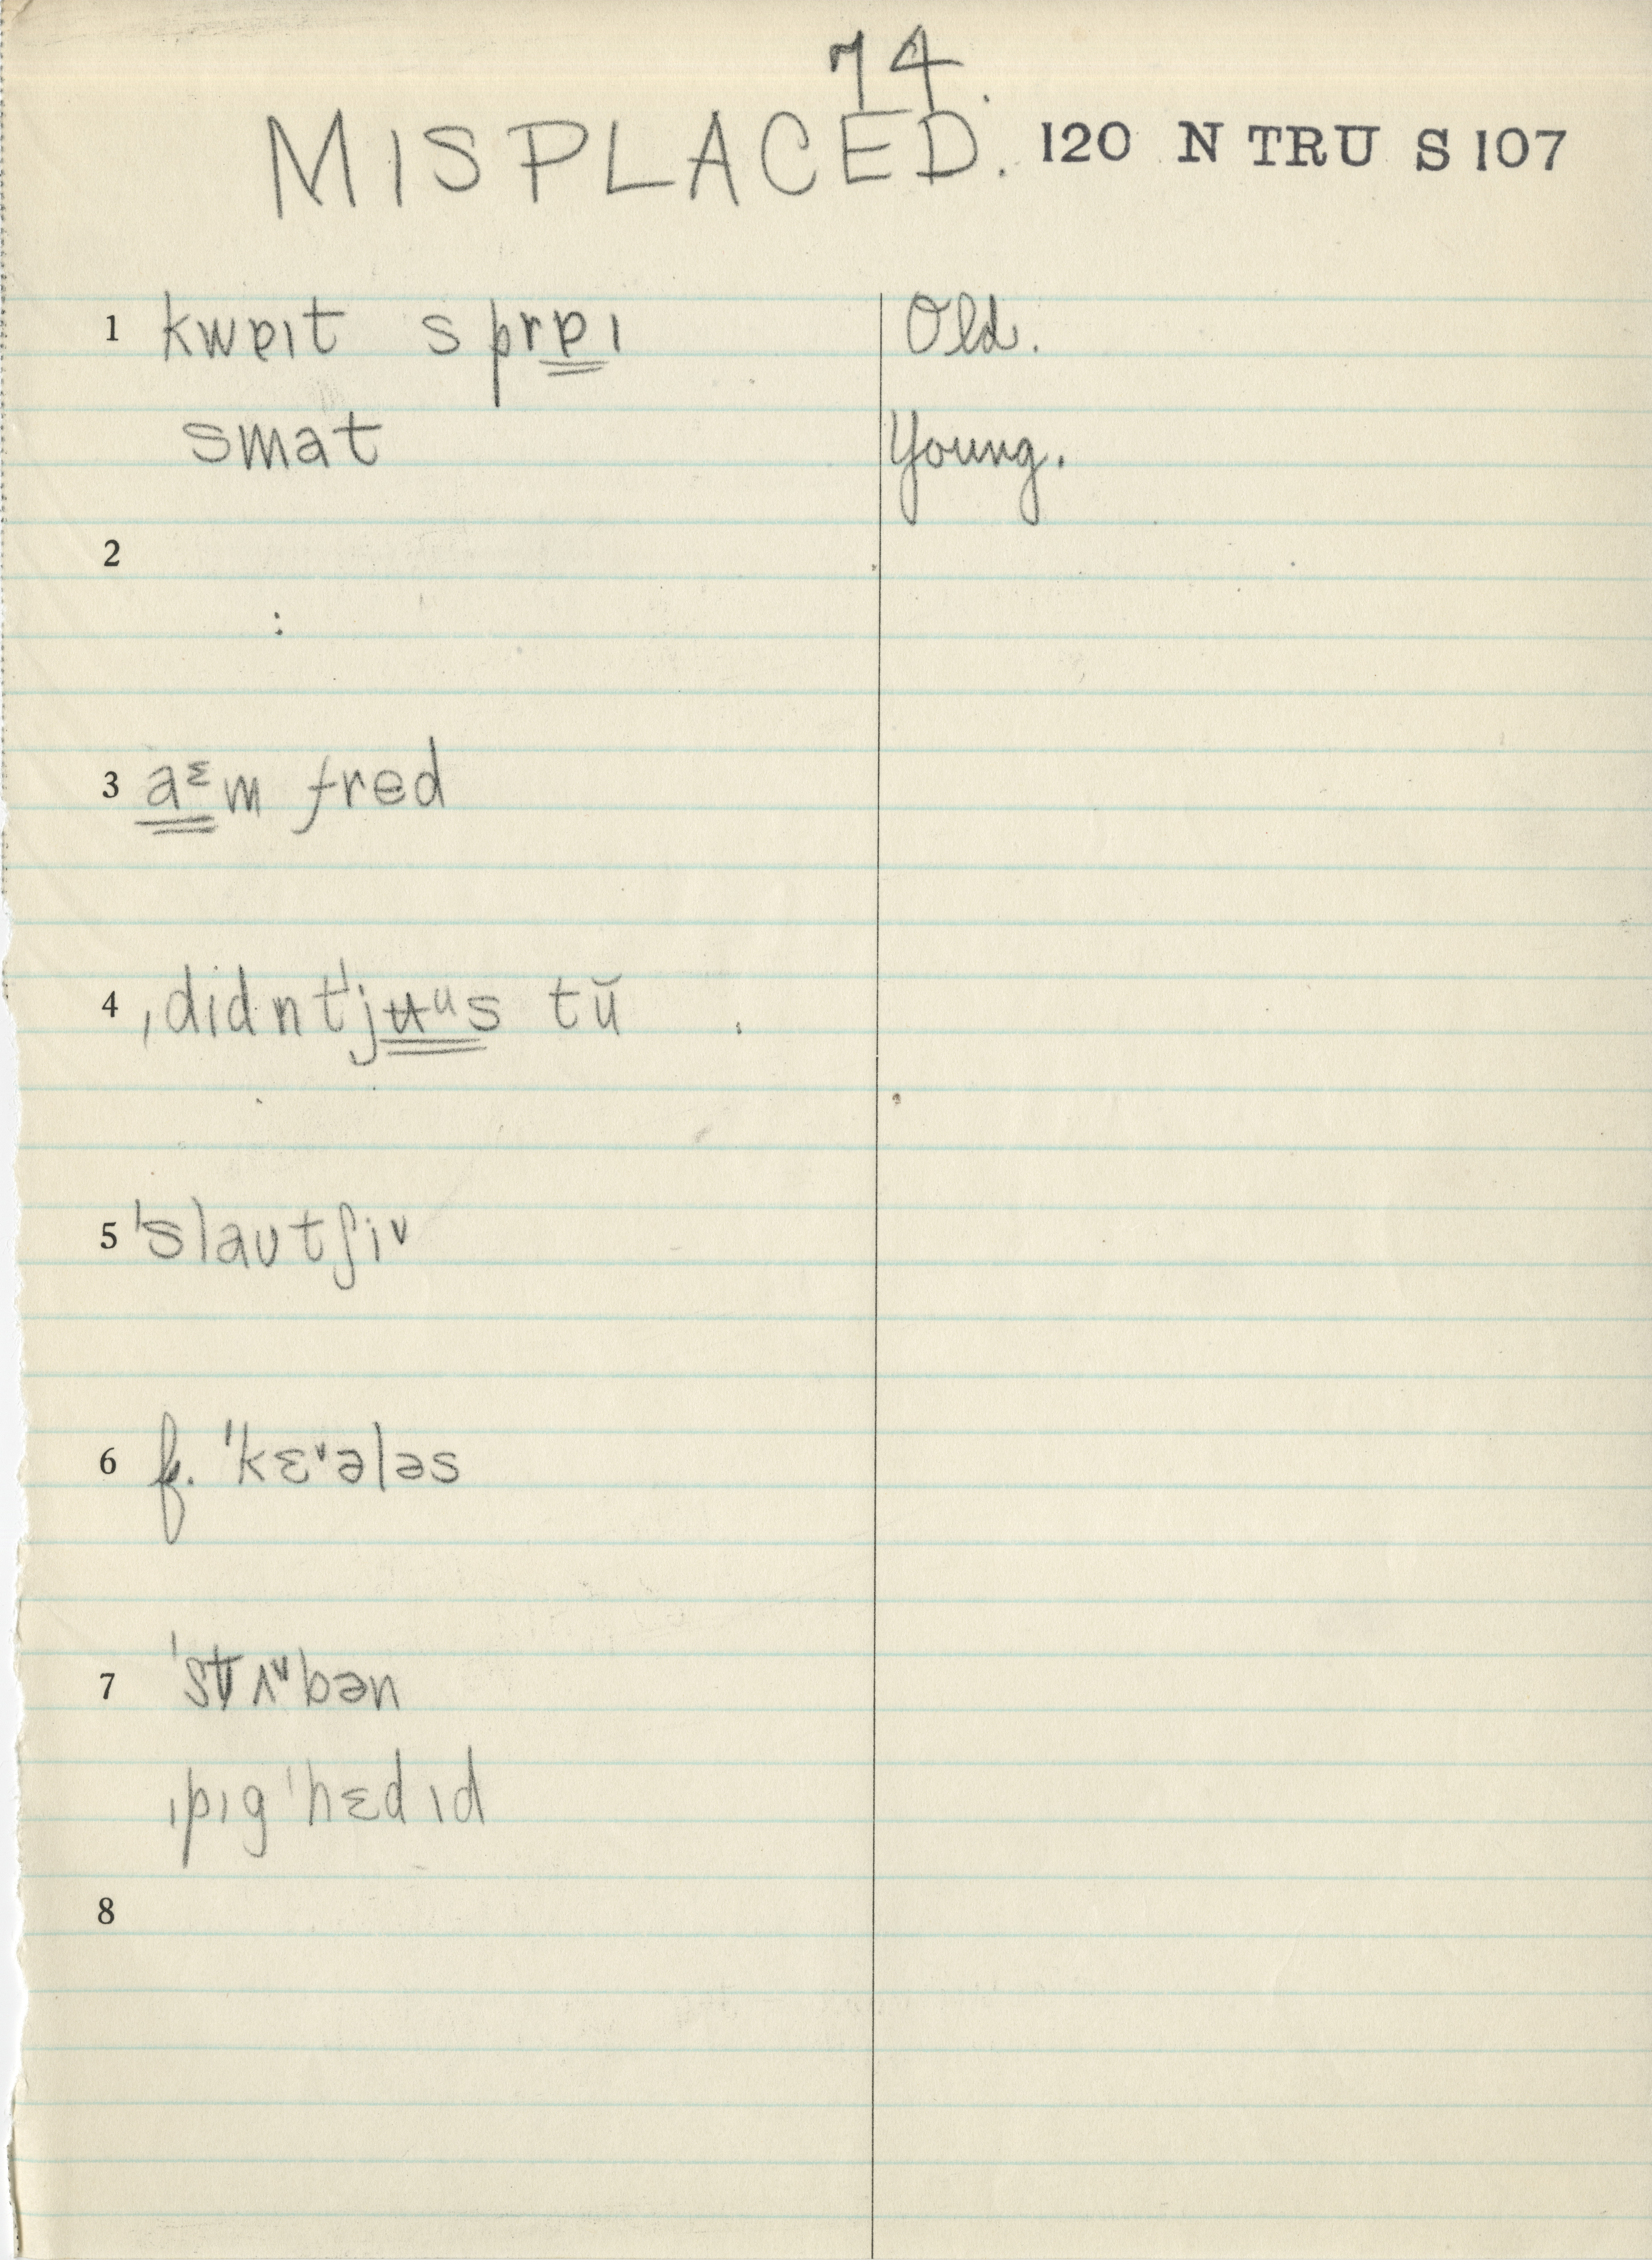 74.
MISPLACED. 120 N TRU S 107
1 kwɐıt sprɐı Old.
smat Young.
2
3 aᵋm fred
4 ˌdıdnt'jʉᵘs tŭ
5 'slaʊtʃiᵛ
6 f. 'kɛᵛələs
7 'stʌᵛbən
ˌpıg'hɛdıd
8